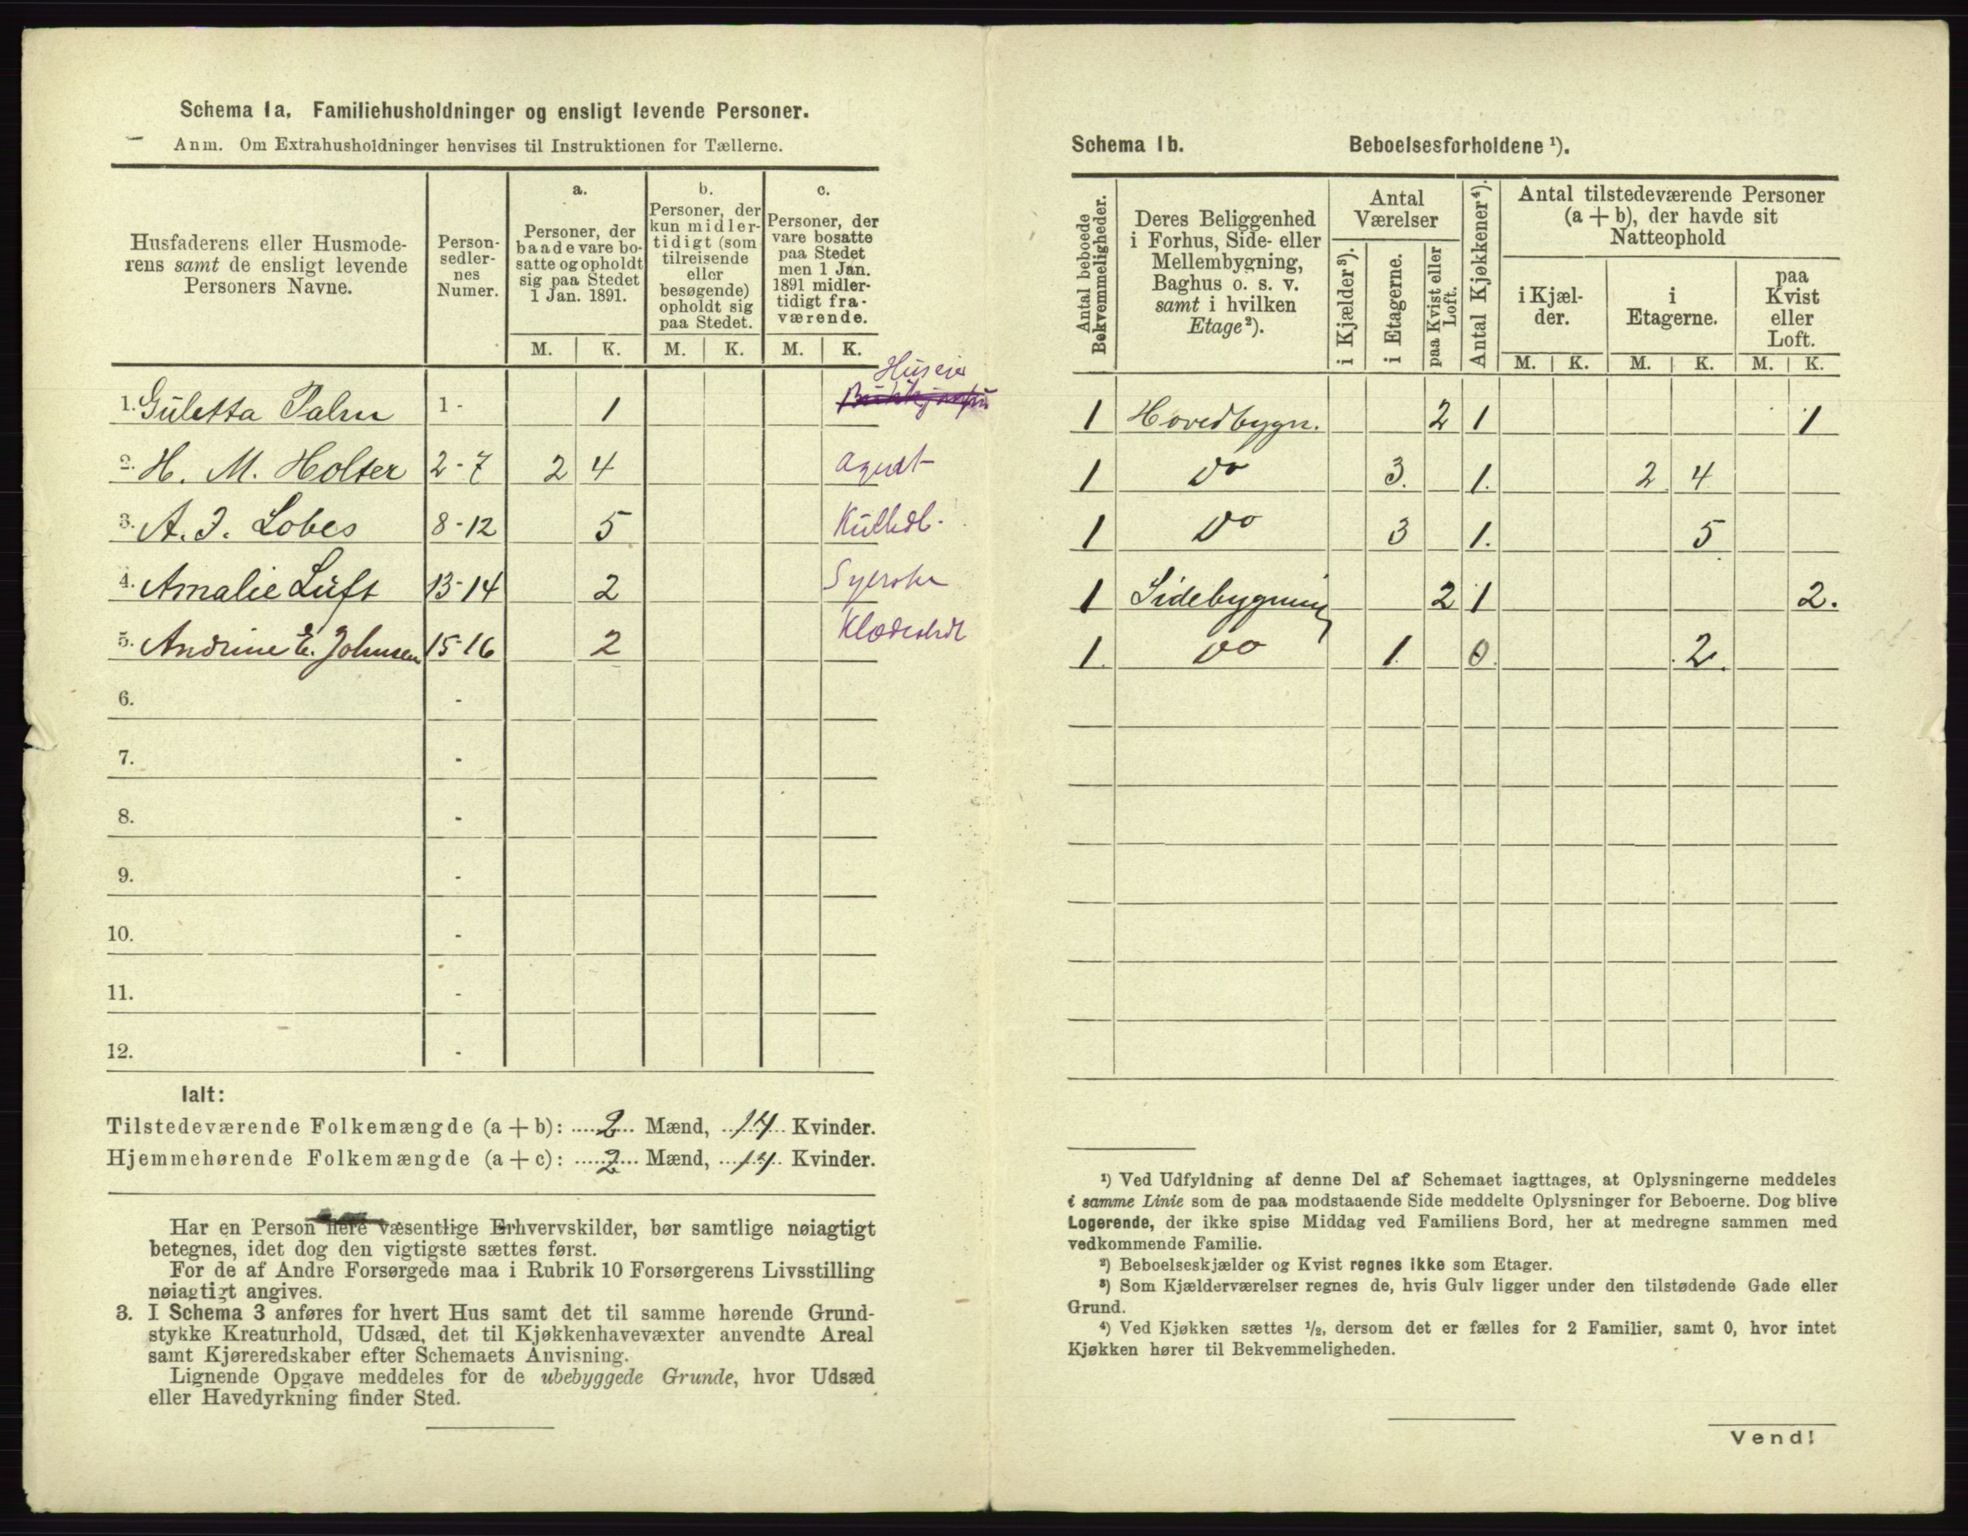 Schema 1a. Familiehusholdninger og ensligt levende Personer.
Anm. Om Extrahusholdninger henvises til Instruktionen for Tællerne.
Husfaderens eller Husmode-
rens samt de ensligt levende
Personers Navne.
Person-
sedler-
nes
Numer.
a.
Personer, der
baade vare bo-
satte og opholdt
sig paa Stedet
1 Jan. 1891.
b.
Personer, der
kun midler-
tidigt (som
tilreisende
eller
besøgende)
opholdt sig
paa Stedet.
c.
Personer, der
vare bosatte
paa Stedet
men 1 Jan.
1891 midler-
tidigt fra-
værende.
M. K. M. K. M. K.
Huseier
1. Guletta Palm 1- 1
2. H. M. Holter 2-7 2 4 agent
3. A. J. Lobes 8-12 5 Kulhdl.
4. Amalie Luft 13-14 2 Syerske
5. Andrine E. Johnsen 15-16 2
6. -
7. -
8. -
9. -
10. -
11. -
12. -
Ialt:
Tilstedeværende Folkemængde (a + b): 2 Mænd, 14 Kvinder.
Hjemmehørende Folkemængde (a + c): 2 Mænd, 14 Kvinder.
Har en Person flere væsentlige Erhvervskilder, bør samtlige nøiagtigt
betegnes, idet dog den vigtigste sættes først.
For de af Andre Forsørgede maa i Rubrik 10 Forsørgerens Livsstilling
nøiagtigt angives.
3. I Schema 3 anføres for hvert Hus samt det til samme hørende Grund-
stykke Kreaturhold, Udsæd, det til Kjøkkenhavevæxter anvendte Areal
samt Kjøreredskaber efter Schemaets Anvisning.
Lignende Opgave meddeles for de ubebyggede Grunde, hvor Udsæd
eller Havedyrkning finder Sted.
Schema 1b. Beboelsesforholdene ¹).
Antal beboede
Bekvemmeligheder.
Deres Beliggenhed
i Forhus, Side- eller
Mellembygning,
Baghus o. s. v.
samt i hvilken
Etage²).
Antal
Værelser
i Kjælder³).
i Etagerne.
paa Kvist eller
Loft.
Antal Kjøkkener⁴).
Antal tilstedeværende Personer
(a + b), der havde sit
Natteophold
i Kjæl-
der.
i
Etagerne.
paa
Kvist
eller
Loft.
M. K. M. K. M. K.
1 Hovedbygn. 2 1 1
1 Do 3. 1. 2 4
1 Do 3 1. 5
1 Sidebygning 2 1 2.
1. Do 1. 0. 2.
¹) Ved Udfyldning af denne Del af Schemaet iagttages, at Oplysningerne meddeles
i samme Linie som de paa modstaaende Side meddelte Oplysninger for Beboerne. Dog blive
Logerende, der ikke spise Middag ved Familiens Bord, her at medregne sammen med
vedkommende Familie.
²) Beboelseskjælder og Kvist regnes ikke som Etager.
³) Som Kjælderværelser regnes de, hvis Gulv ligger under den tilstødende Gade eller
Grund.
⁴) Ved Kjøkken sættes ½, dersom det er fælles for 2 Familier, samt 0, hvor intet
Kjøkken hører til Bekvemmeligheden.
Vend!